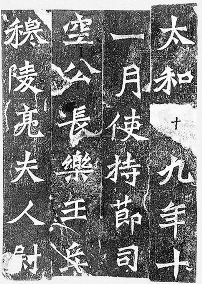 太和十九年十
一月使持節司
空公長樂王丘
穆陵亮夫人尉